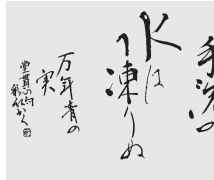 手洗の
水は
凍りぬ
万年青の
実